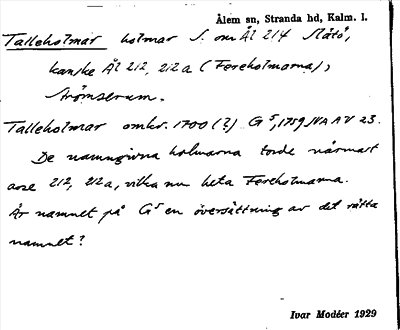 Ålem sn, Stranda hd, Kalm. l.
Talleholmar holmar S. om Ål 214 Slätö,
kanske Ål 212, 212a (Fereholmarna),
Strömserum.
Talleholmar omkr. 1700 (?) G⁵, 1759 JVA AV 23.
De namngivna holmarna torde närmast
avse 212, 212a, vilka nu heta Fereholmarna.
Är namnet på G⁵ en översättning av det rätta
namnet?
Ivar Modéer 1929